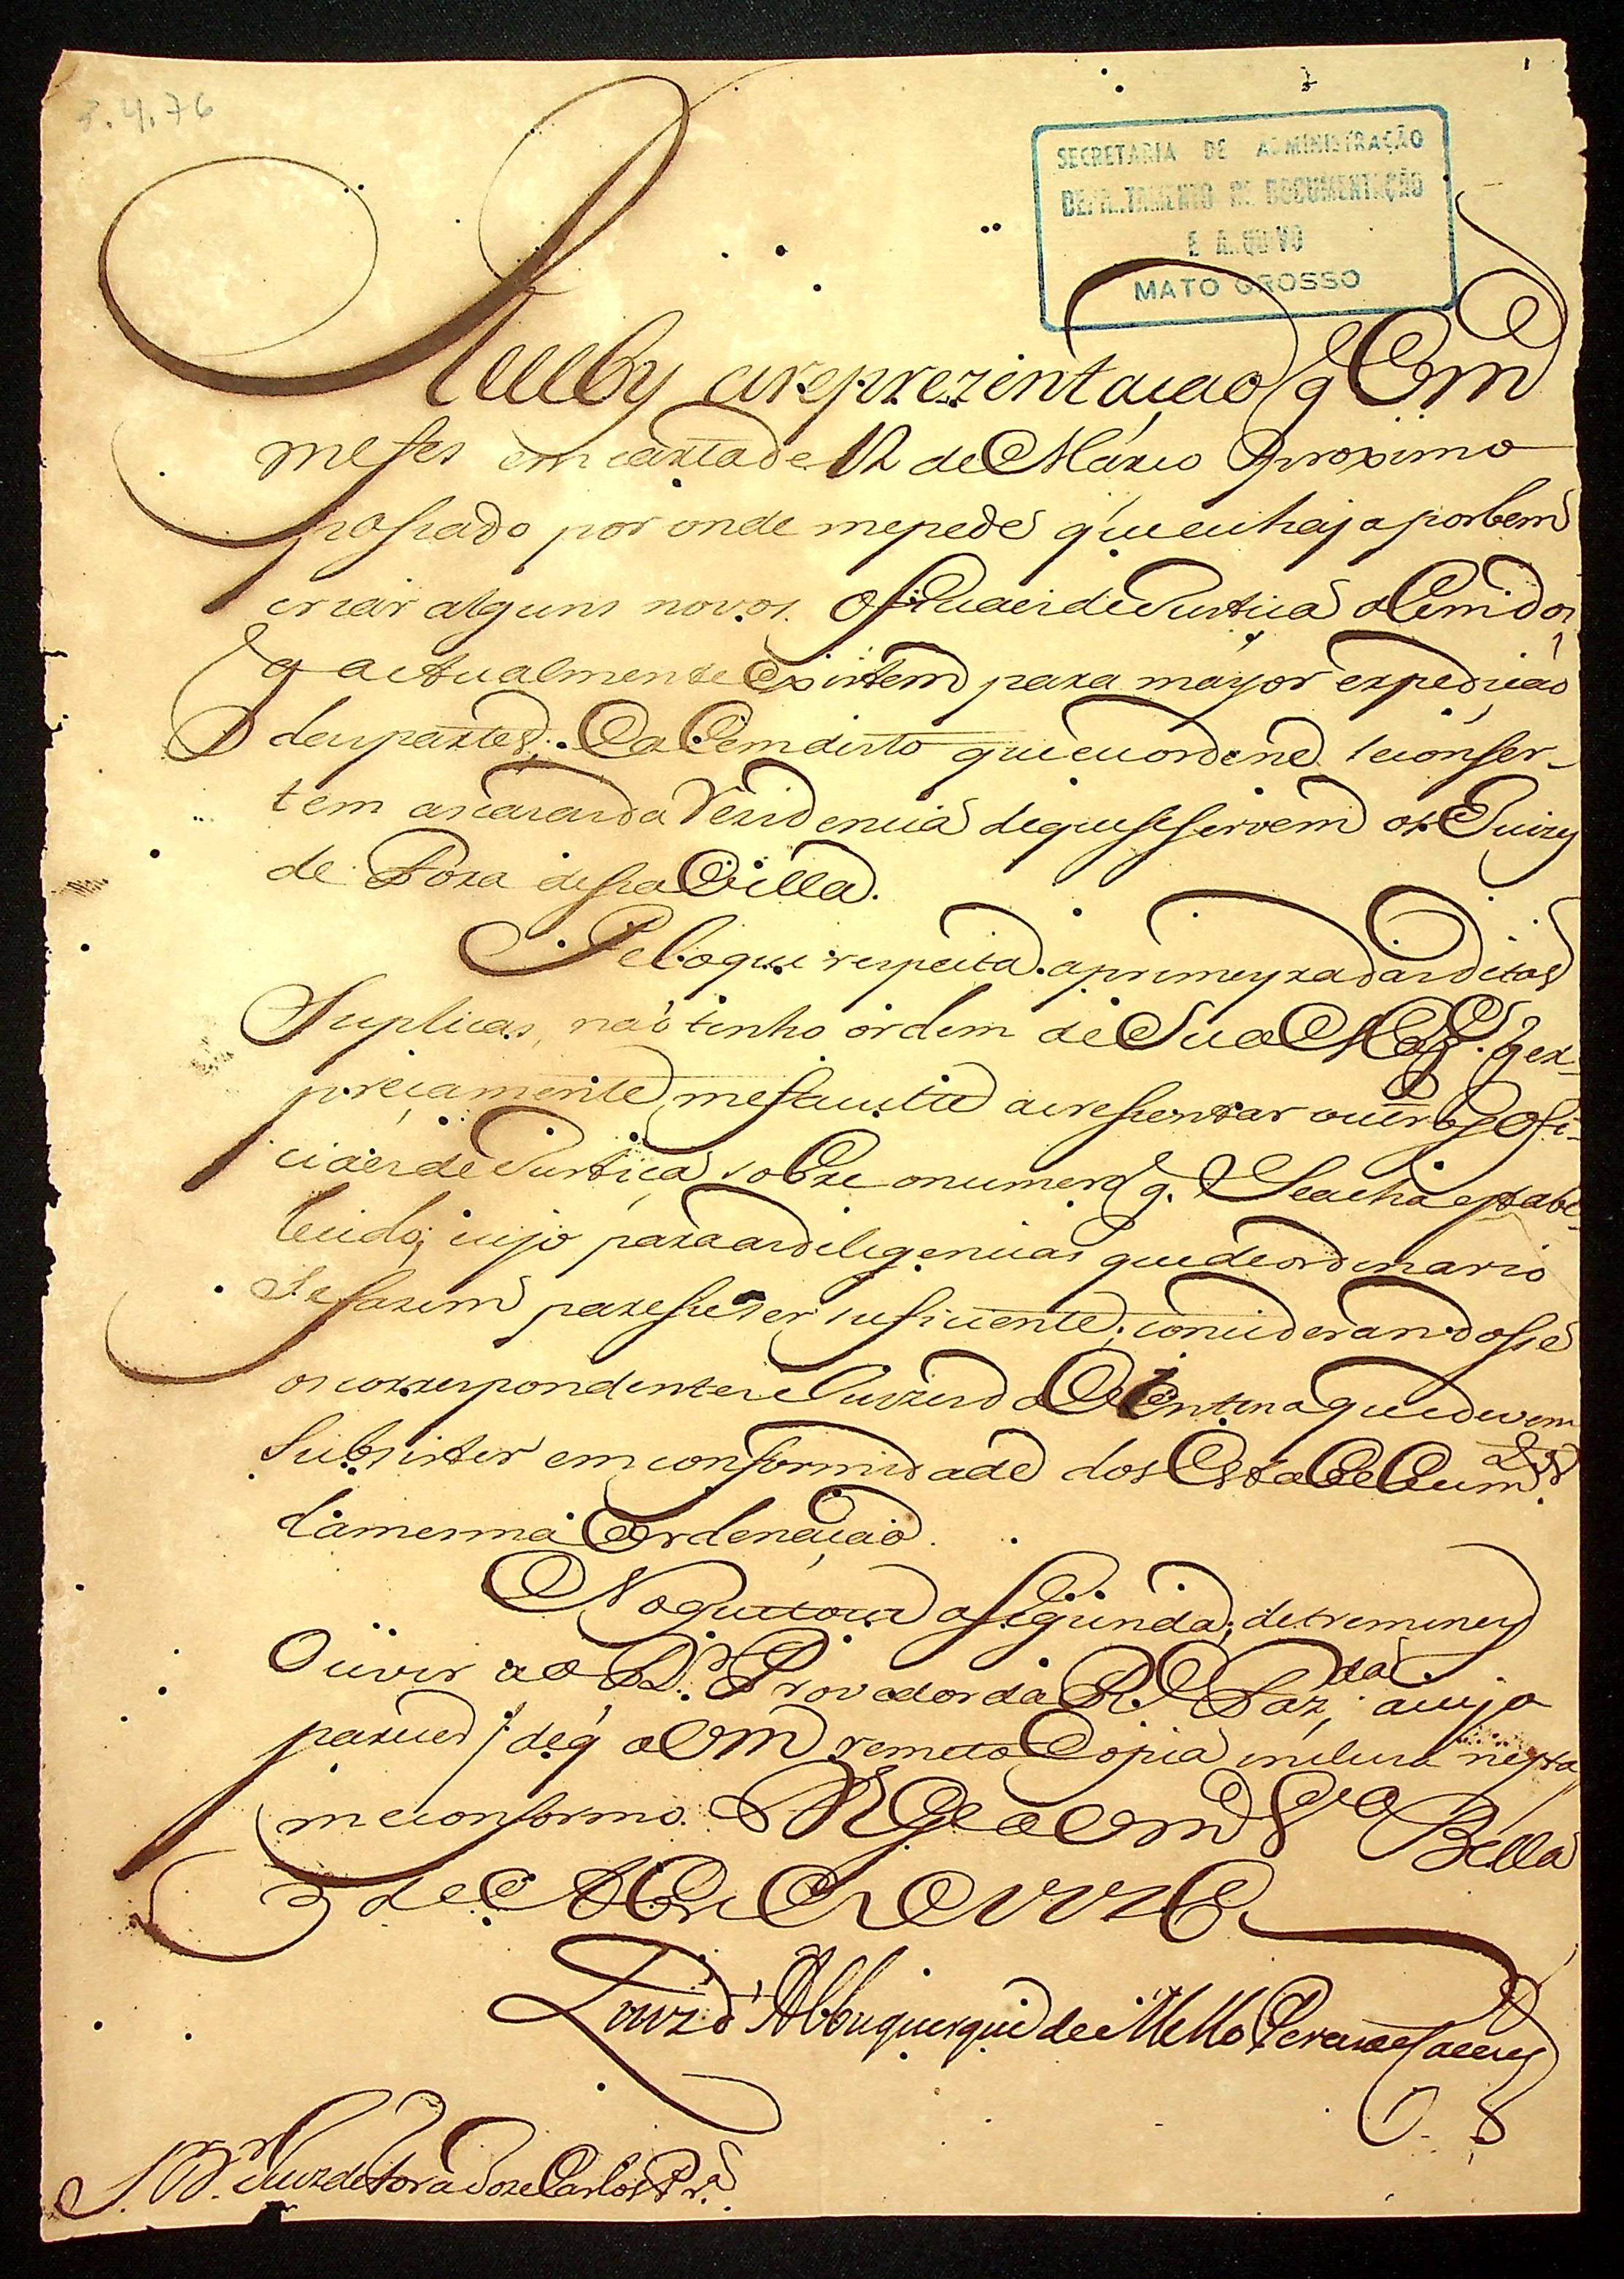 3.4.76
SECRETARIA DE ADMINISTRAÇÃO
DEPARTAMENTO DE DOCUMENTAÇÃO
E ARQUIVO
MATO GROSSO
Receby areprezentação q Vm
mefes em carta de 12 de Março proximo
passado por onde mepede queeuhaja porbem
criar alguns novos Officiaes de Justiça alem dos
q actualmente existem para mayor expedição
das partes; e alem disto que eu ordene seconser-
tem ascazas da Rezidencia dequeseservem os Juizes
de Fora dessa Villa.
Peloque respeita aprimeyra das ditas
Suplicas, não tinho ordem de Sua Mag.e q ex-
preçamente mefaculte acressentar outros Offi-
ciaes de Justiça sobre onumero q. Seacha estabe-
lecido; cujo para as diligencias que de ordinario
Sefazem paresse ser suficiente, concideran dosse
os correspondentes Juizes da Vintena que devem
Subsistir em conformidade dos Estabelecim.tos
damesma Ordenação.
No que toca a Segunda; detreminey
Ouvir ao D.r Provedor da R.l Faz.da; acujo
parecer / deq a Vm remeto Copia incluza nesta /
meconformo. D.s g.e a Vm V.a Bella
3 de Abril de 1776
Luiz d' Albuquerque de Mello Pereira e Caceres
S.r D.r Juiz de Fora Joze Carlos Pr.a